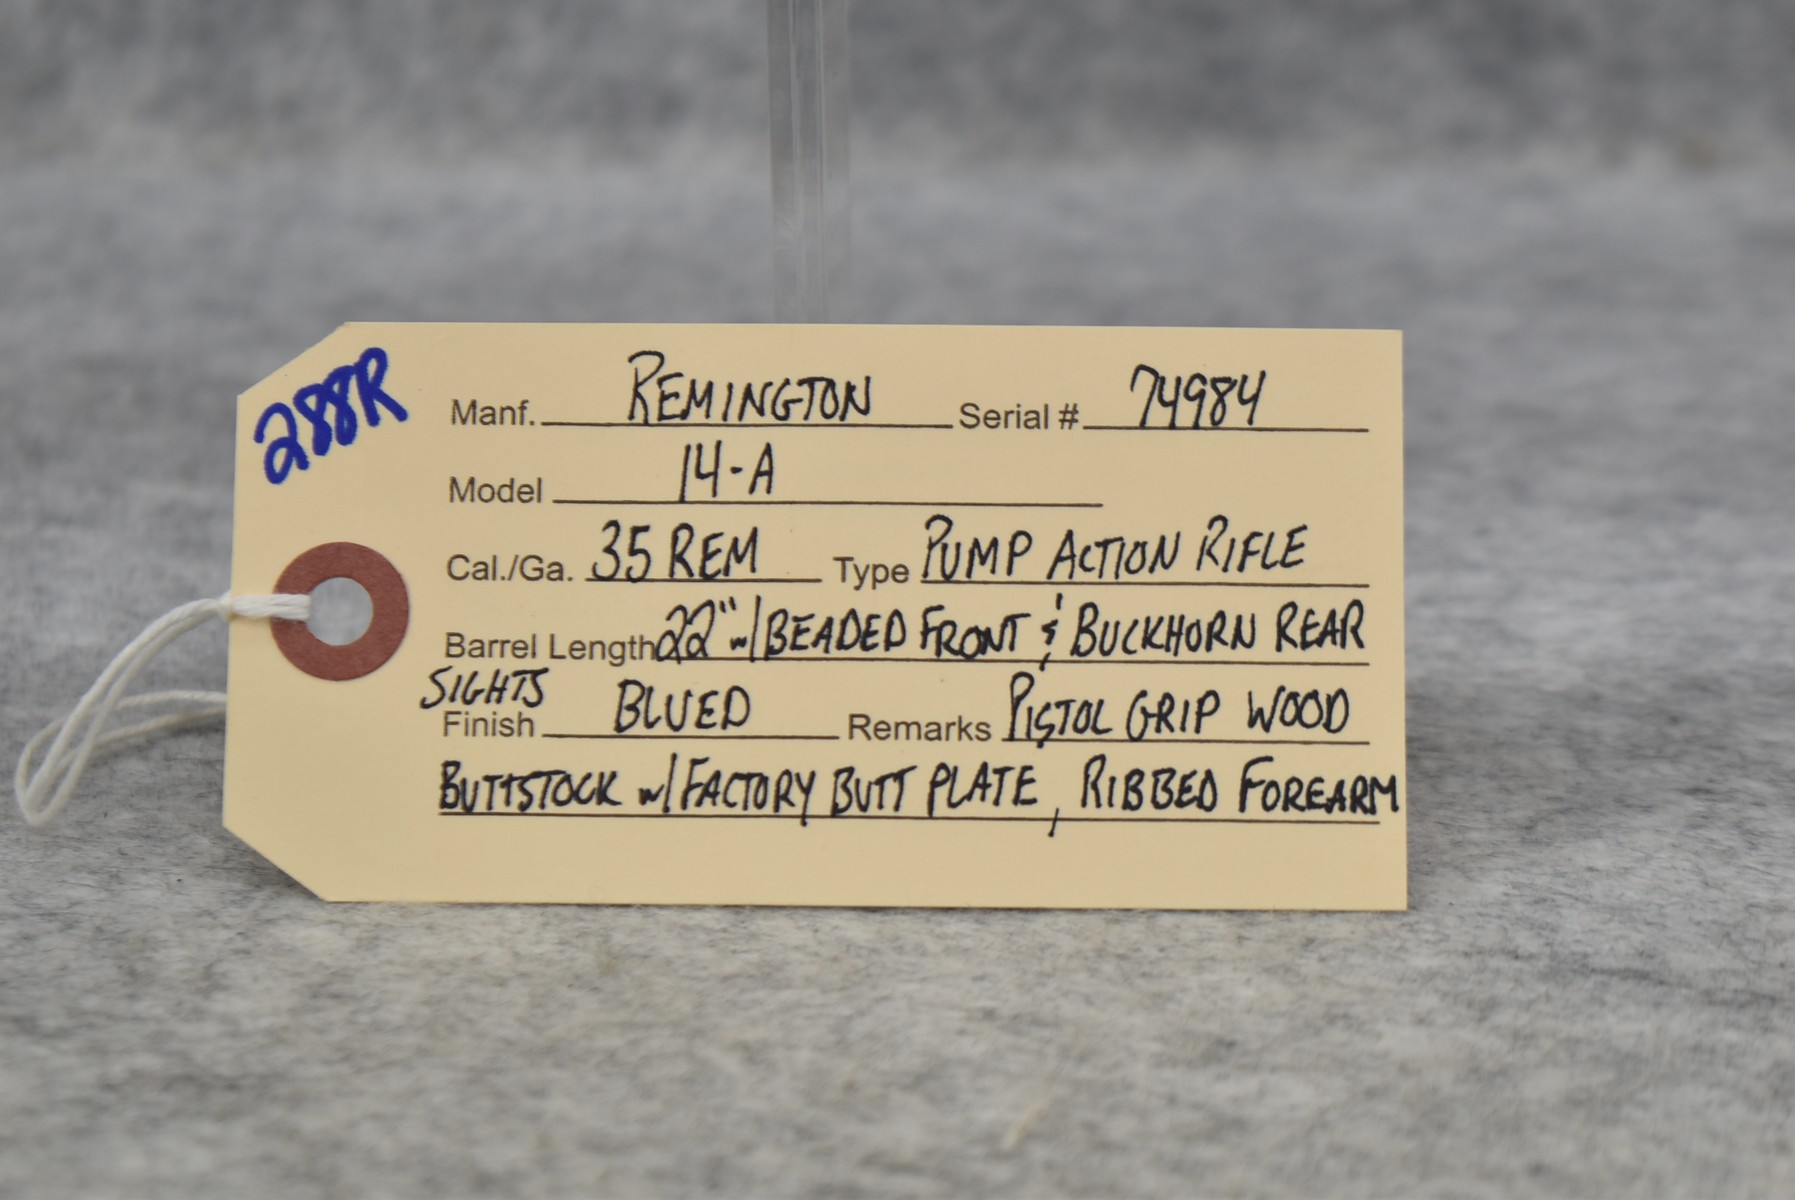 288R
Manf. REMINGTON Serial # 74984
Model 14-A
Cal./Ga. 35 REM Type PUMP ACTION RIFLE
Barrel Length 22" w/ BEADED FRONT & BUCKHORN REAR
SIGHTS
Finish BLUED Remarks PISTOL GRIP WOOD
BUTTSTOCK w/ FACTORY BUTT PLATE, RIBBED FOREARM